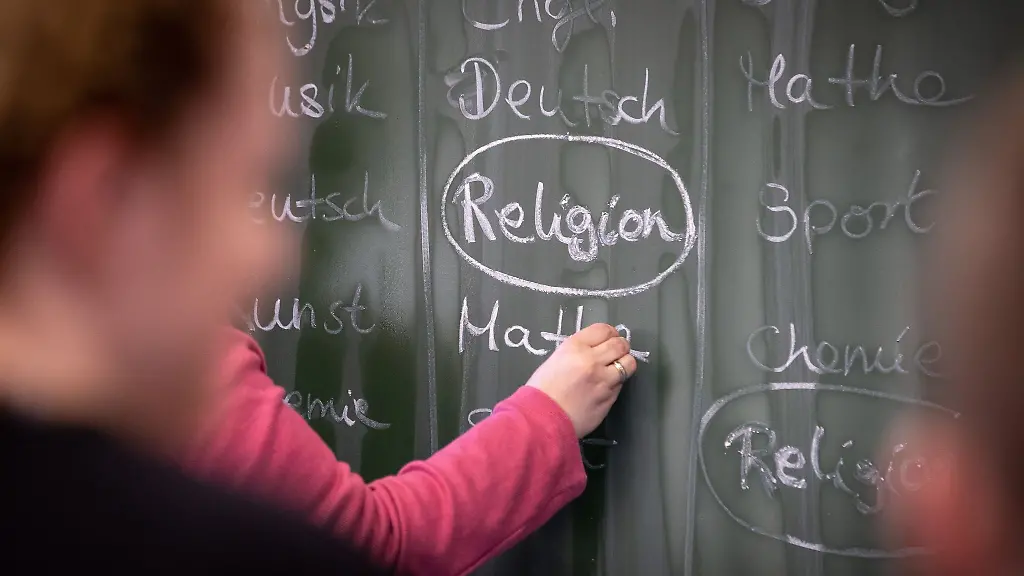 usik
eutsch
unst
emie
Deutsch
Religion
Mathe
Mathe
Sport
Chemie
Religio